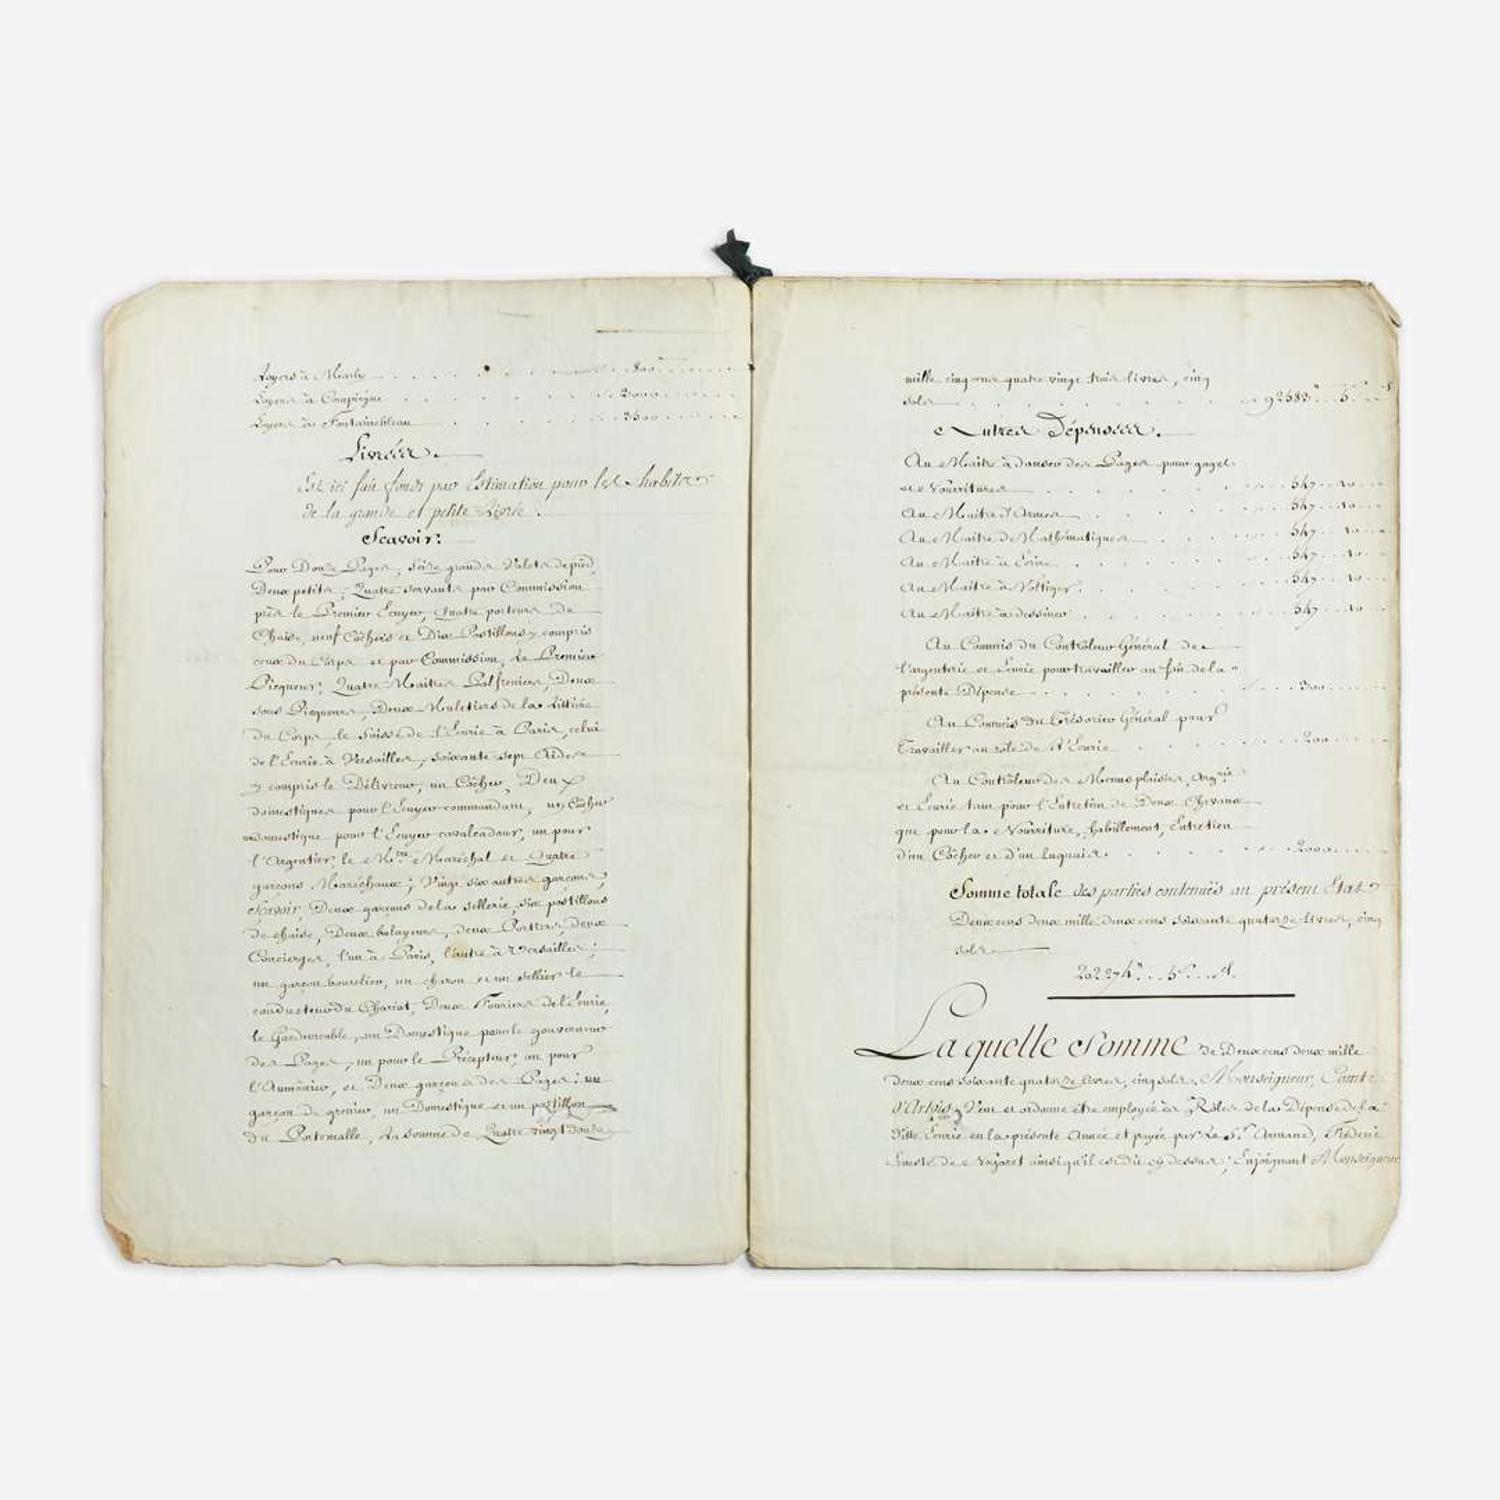 Loyers à Marly . . . . . . 800 . . .
Loyers à Compiègne . . . . . 2000 . . .
Loyers à Fontainebleau . . . . 3500 . . .
Livrées.
Est ici fait fonds par Estimation pour les habits
de la grande et petite Livrée.
Scavoir:
Pour Douze Pages, Seize grands Valets de pied,
Deux petits, Quatre servants par Commission
près le Premier Ecuyer, Quatre porteurs De
Chaise, neuf Côchers et Dix Postillons y compris
ceux du Corps et par Commission, Le Premier
Piequeur, Quatre Maitres Palfreniers, Deux
sous Piequeurs, Deux Muletiers de la Littière
du Corps, le Suisse de l'Ecurie à Paris, celui
de l'Ecurie à Versailles, soixante sept Aides
y compris le Délivreur, un Côcher, Deux
domestiques pour l'Ecuyer commandant, un Côcher
domestique pour l'Ecuyer cavalcadour, un pour
l'Argentier, le Me. Maréchal et Quatre
garçons Maréchaux; Vingt six autres garçons,
Sçavoir, Deux garçons de la sellerie, six postillons
de chaise, Deux balayeurs, deux Portiers, deux
Concierges, l'un à Paris, l'autre à Versailles;
un garçon bourelier, un charon et un sellier le
conducteur du Chariot, Deux Fouriers de l'Ecurie,
le Gardemeuble, un Domestique pour le gouverneur
des Pages, un pour le Précepteur, un pour
l'Aumônier, et Deux garçons des Pages; un
garçon de grenier, un Domestique et un postillon
du Portemalle, La somme de Quatre vingt douze
mille cinq cens quatre vingt trois livres, cinq
sols . . . . . . 92583 . . 5 . .
Autres Dépenses.
Au Maitre à danser des Pages pour gages
et Nourritures . . . . . 547 . . 10 . .
Au Maitre d'Armes . . . . 547 . . 10 . .
Au Maitre de Mathématiques . . . . 547 . . 10 . .
Au Maitre à Ecrire . . . . 547 . . 10 . .
Au Maitre à Voltiger . . . . 547 . . 10 . .
Au Maitre à dessiner . . . . 547 . . 10 . .
Au Commis du Contrôleur Général de
l'argenterie et Ecurie pour travailler au fait de la
présente Dépense . . . . . 300 . . .
Au Commis du Trésorier Général pour
Travailler au rôle de l'Ecurie . . . . 200 . . .
Au Contrôleur des Menus plaisirs, Argrie
et Ecurie tant pour l'Entretien de Deux Chevaux
que pour la Nourriture, habillement, Entretien
d'un Côcher et d'un laquais . . . . 2000 . . .
Somme totale des parties contenuës au présent Etat
Deux cens deux mille deux cens soixante quatorze Livres, cinq
sols
202274 . . 5 . .
Laquelle Somme de Deux cens deux mille
deux cens soixante quatorze Livres, cinq sols, Monseigneur, Comte
d'Artois, Veut et ordonne être employée ès Rôles de la Dépense de sa
ditte Ecurie en la présente Année et payée par Le Sr. Armand, Frédéric
Ernest de Nogaret ainsi qu'il est dit cy dessus; Enjoignant Monseigneur